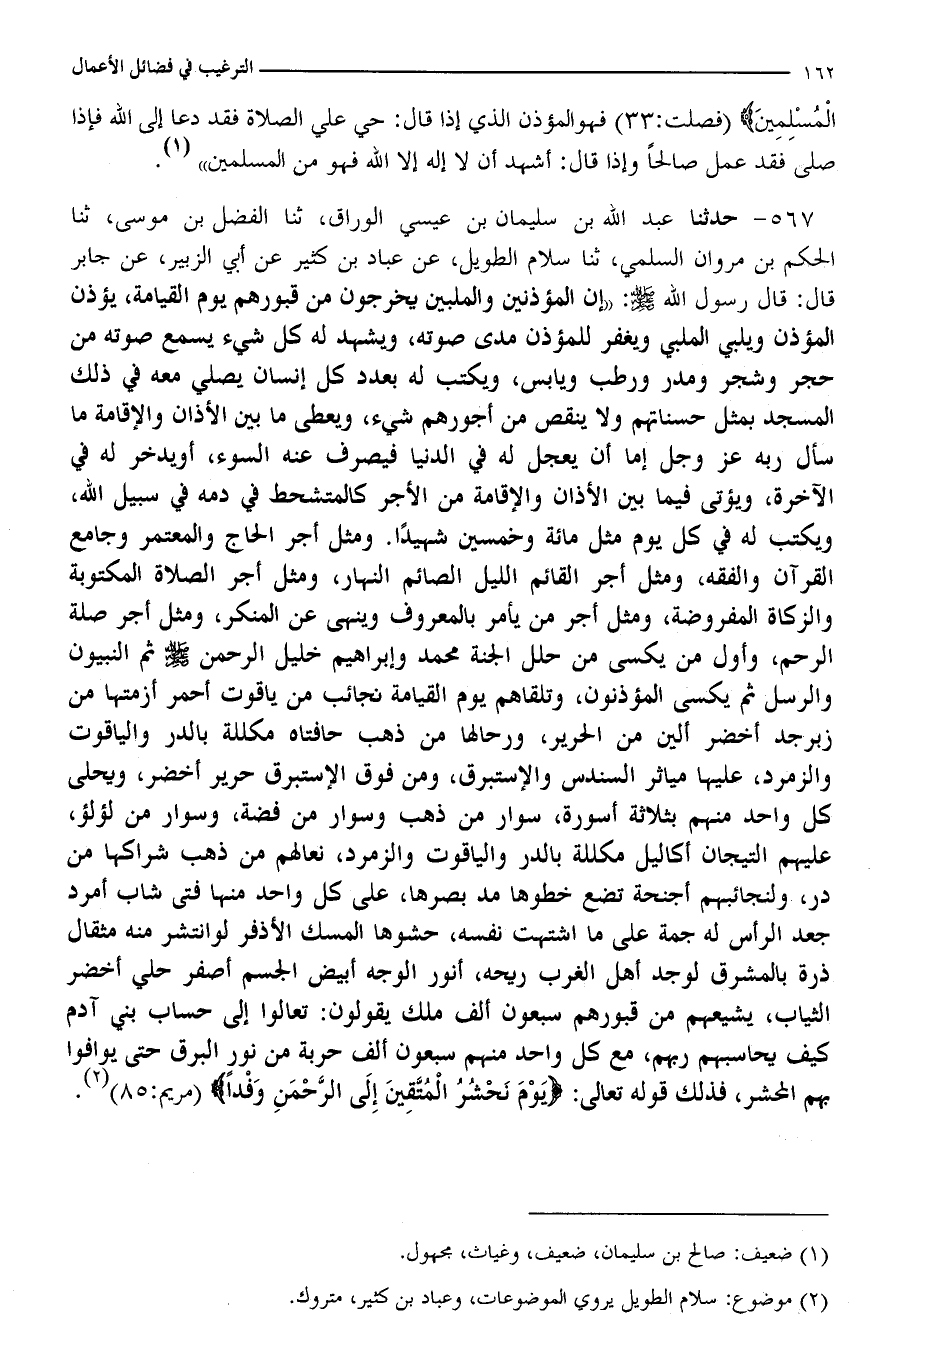 ١٦٢ ــــــــــــــــــــ الترغيب في فضائل الأعمال
الْمُسْلِمِينَ﴾ (فصلت:٣٣) فهوالمؤذن الذي إذا قال: حي علي الصلاة فقد دعا إلى الله فإذا
صلى فقد عمل صالحاً وإذا قال: أشهد أن لا إله إلا الله فهو من المسلمين» (١).
٥٦٧- حدثنا عبد الله بن سليمان بن عيسي الوراق، ثنا الفضل بن موسى، ثنا
الحكم بن مروان السلمي، ثنا سلام الطويل، عن عباد بن كثير عن أبي الزبير، عن جابر
قال: قال رسول الله ﷺ: «إن المؤذنين والملبين يخرجون من قبورهم يوم القيامة، يؤذن
المؤذن ويلبي الملبي ويغفر للمؤذن مدى صوته، ويشهد له كل شيء يسمع صوته من
حجر وشجر ومدر ورطب ويابس، ويكتب له بعدد كل إنسان يصلي معه في ذلك
المسجد بمثل حسناتهم ولا ينقص من أجورهم شيء، ويعطى ما بين الأذان والإقامة ما
سأل ربه عز وجل إما أن يعجل له في الدنيا فيصرف عنه السوء، أويدخر له في
الآخرة، ويؤتى فيما بين الأذان والإقامة من الأجر كالمتشحط في دمه في سبيل الله،
ويكتب له في كل يوم مثل مائة وخمسين شهيدًا. ومثل أجر الحاج والمعتمر وجامع
القرآن والفقه، ومثل أجر القائم الليل الصائم النهار، ومثل أجر الصلاة المكتوبة
والزكاة المفروضة، ومثل أجر من يأمر بالمعروف وينهى عن المنكر، ومثل أجر صلة
الرحم، وأول من يكسى من حلل الجنة محمد وإبراهيم خليل الرحمن ﷺ ثم النبيون
والرسل ثم يكسى المؤذنون، وتلقاهم يوم القيامة نجائب من ياقوت أحمر أزمتها من
زبرجد أخضر ألين من الحرير، ورحالها من ذهب حافتاه مكللة بالدر والياقوت
والزمرد، عليها مياثر السندس والإستبرق، ومن فوق الإستبرق حرير أخضر، ويحلى
كل واحد منهم بثلاثة أسورة، سوار من ذهب وسوار من فضة، وسوار من لؤلؤ،
عليهم التيجان أكاليل مكللة بالدر والياقوت والزمرد، نعالهم من ذهب شراكها من
در، ولنجائبهم أجنحة تضع خطوها مد بصرها، على كل واحد منها فتى شاب أمرد
جعد الرأس له جمة على ما اشتهت نفسه، حشوها المسك الأذفر لوانتشر منه مثقال
ذرة بالمشرق لوجد أهل الغرب ريحه، أنور الوجه أبيض الجسم أصفر حلي أخضر
الثياب، يشيعهم من قبورهم سبعون ألف ملك يقولون: تعالوا إلى حساب بني آدم
كيف يحاسبهم ربهم، مع كل واحد منهم سبعون ألف حربة من نور البرق حتى يوافوا
بهم المحشر، فذلك قوله تعالى: ﴿يَوْمَ نَحْشُرُ الْمُتَّقِينَ إِلَى الرَّحْمَنِ وَفْداً﴾ (مريم:٨٥)(٢).
(١) ضعيف: صالح بن سليمان، ضعيف، وغياث، مجهول.
(٢) موضوع: سلام الطويل يروي الموضوعات، وعباد بن كثير، متروك.